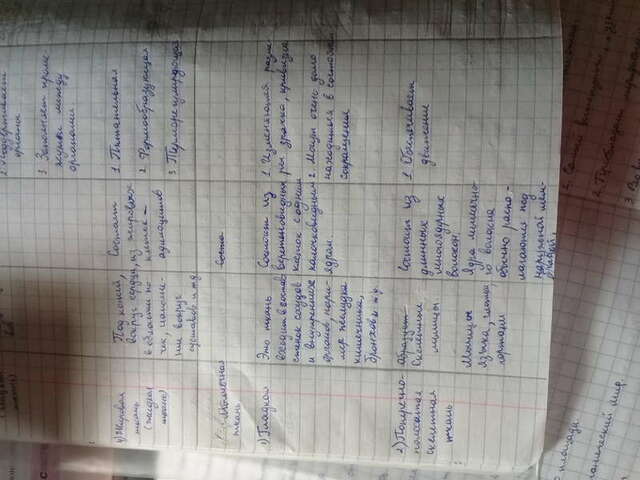 2. Поддерживает
органы
3. Заполняет проме-
жутки между
органами.
4) Жировая
ткань
(жидкая
ткань)
Под кожей,
вокруг сердца,
в области по-
чек,
вокруг
суставов и т.д.
Состоит
из жировых
клеток -
адипоцитов
1. Питательная
2. Формообразующая
3. Терморегулирующая
Мышечная
ткань
Соста
1) Гладкая
Это ткань
входит в состав
стенок сосудов
и внутренних
органов, напри-
мер желудка
кишечника,
бронхов и т.д.
Состоит из
веретеновидных
клеток с одним
палочковидным
ядром.
1. Изменяющая разме-
ры зрачка, кривизна
2. Могут очень долго
находиться в состоянии
сокращения
2) Поперечно-
полосатая
скелетная
ткань
Образует
Скелетные
мышцы
Мышцы
языка, глотки,
гортани
Состоит из
длинных
многоядерных
волокон.
Ядра мышечно-
го волокна
обычно распо-
лагаются под
наружной мем-
браной.
1. Обеспечивает
движение
площади
мир.